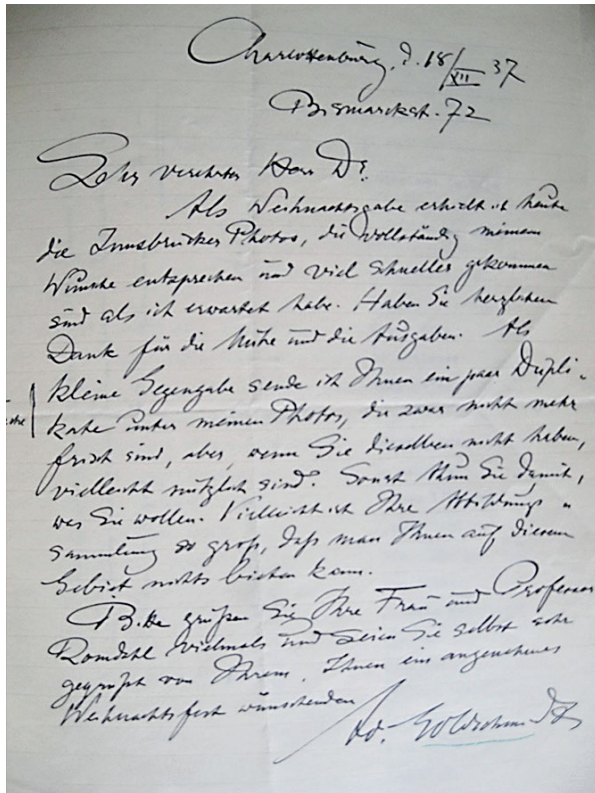 Charlottenburg, d. 18/XII 37
Bismarckst. 72
Sehr verehrter Herr Dr.
Als Weihnachtsgabe erhielt ich heute
die Innsbrucker Photos, die vollständig meinem
Wunsche entsprechen und viel schneller gekommen
sind als ich erwartet habe. Haben Sie herzlichen
Dank für die Mühe und die Ausgaben. Als
kleine Gegengabe sende ich Ihnen ein paar Dupli-
kate unter meinen Photos, die zwar nicht mehr
frisch sind, aber, wenn Sie dieselben nicht haben,
vielleicht nützlich sind. Sonst thun Sie damit,
was Sie wollen. Vielleicht ist Ihre Abbildungs-
sammlung so groß, daß man Ihnen auf diesem
Gebiet nichts bieten kann.
Bitte grüßen Sie Ihre Frau und Professor
Romdahl vielmals und seien Sie selbst sehr
gegrüßt von Ihrem, Ihnen ein angenehmes
Weihnachtsfest wünschenden
Ad. Goldschmidt